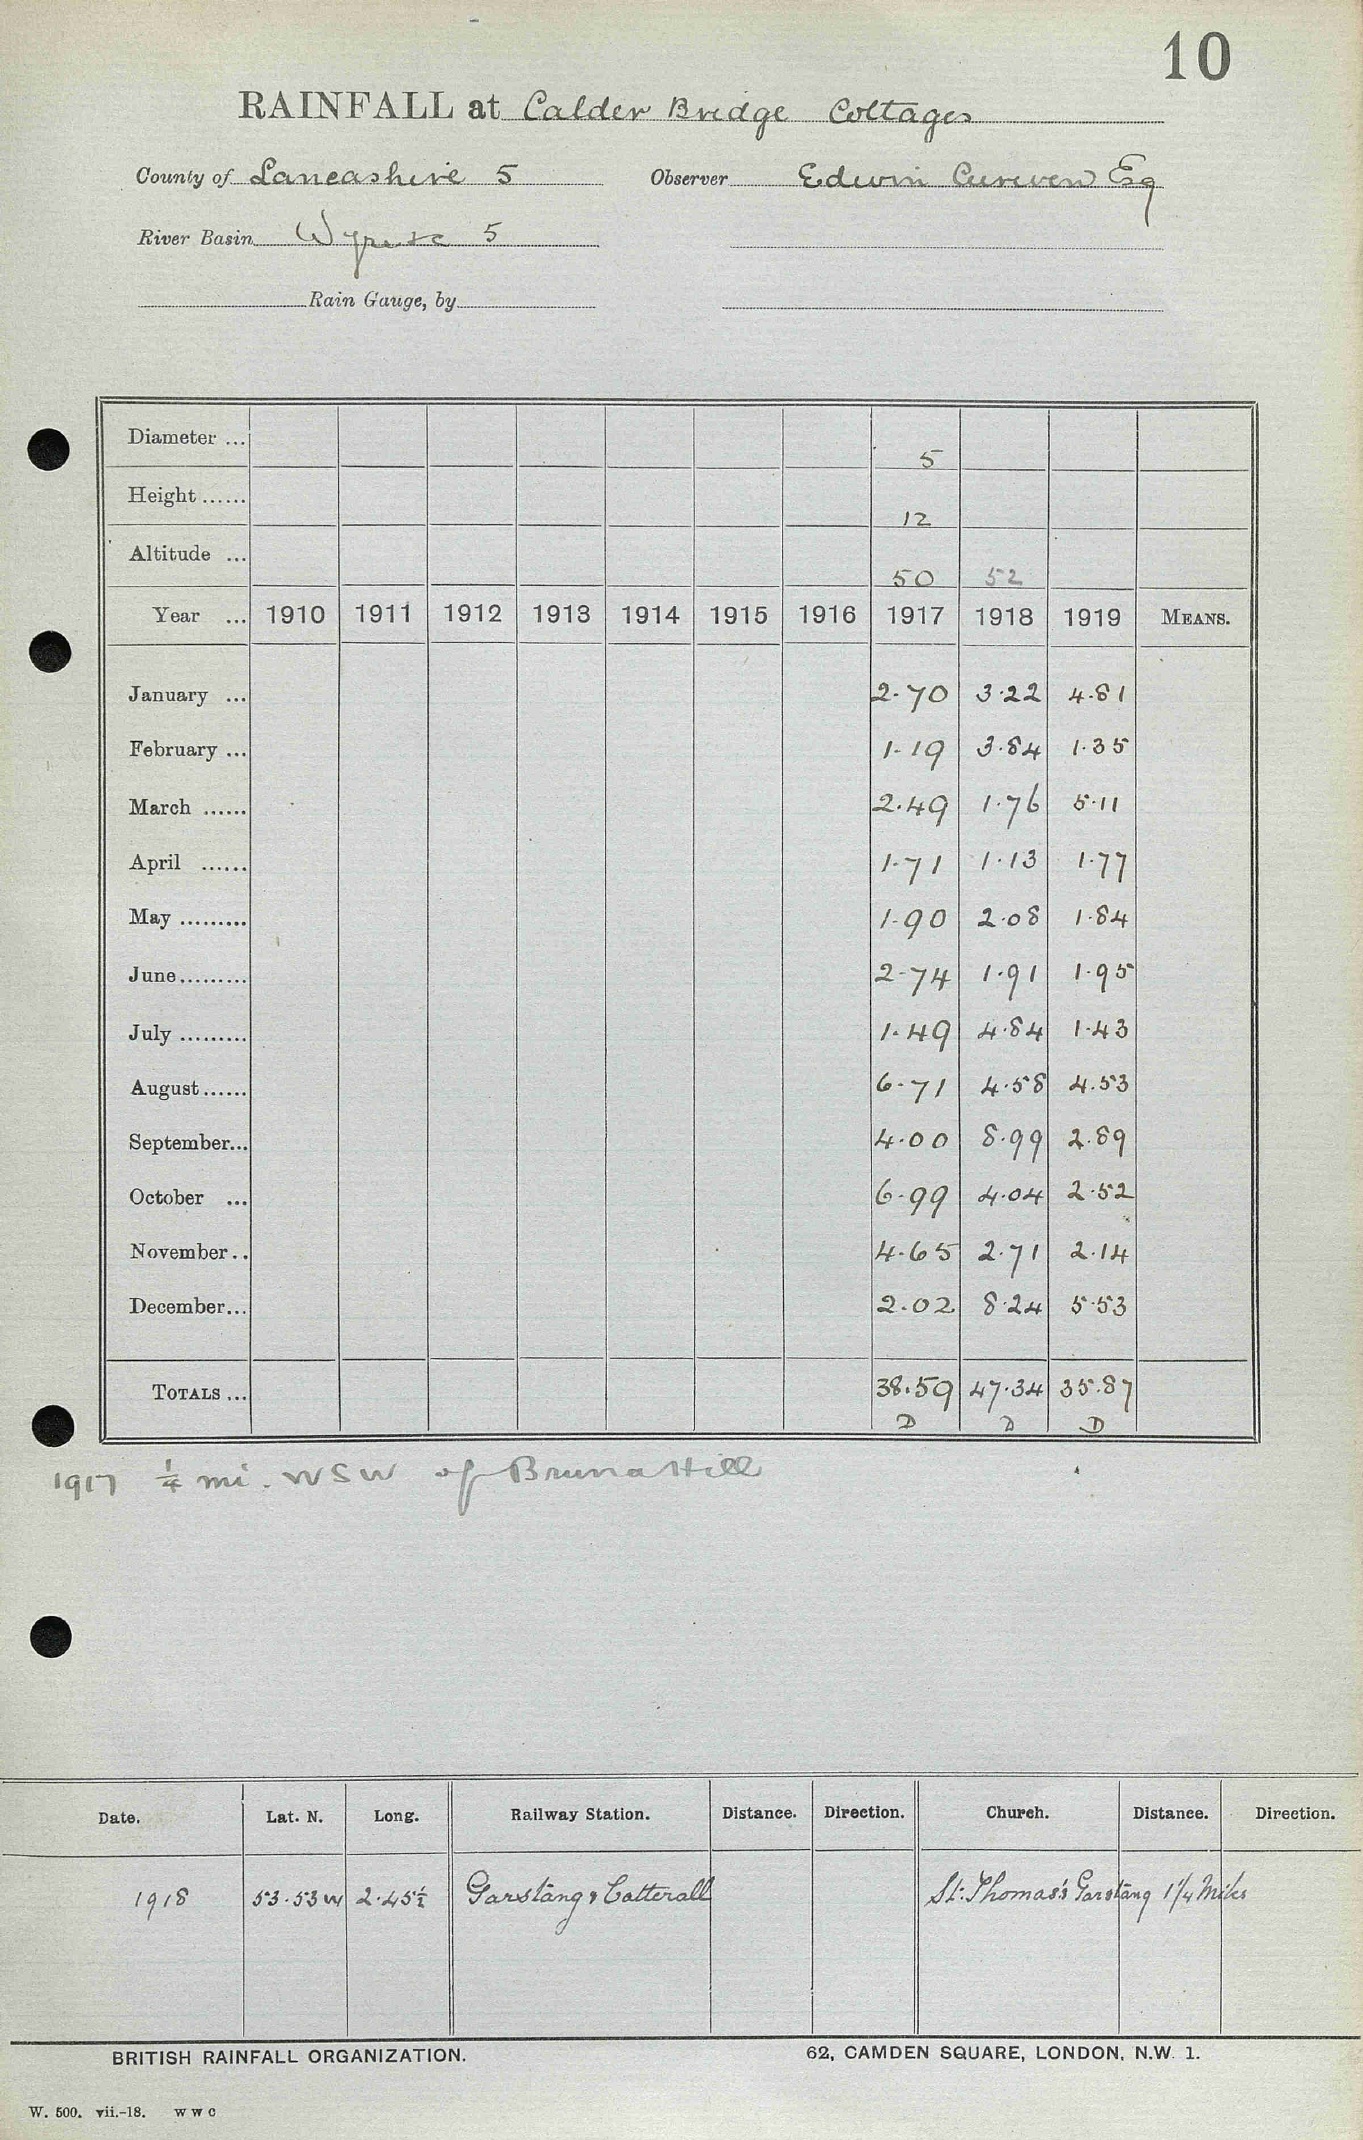 10
RAINFALL at Calder Bridge Cottages
County of Lancashire 5 Observer Edwin Curwen Esq
River Basin 5
Rain Gauge, by
Diameter ... 5
Height ...... 12
Altitude ... 50 52
Year ... 1910 1911 1912 1913 1914 1915 1916 1917 1918 1919 MEANS.
January ... 2.70 3.22 4.81
February ... 1.19 3.84 1.35
March ...... 2.49 1.76 5.11
April ...... 1.71 1.13 1.77
May ......... 1.90 2.08 1.84
June......... 2.74 1.91 1.95
July ......... 1.49 4.84 1.43
August...... 6.71 4.58 4.53
September... 4.00 8.99 2.89
October ... 6.99 4.04 2.52
November.. 4.65 2.71 2.14
December... 2.02 8.24 5.53
TOTALS ... 38.59 47.34 35.87
D D D
1917 1/4 mi. WSW of Bruna Hill
Date. Lat. N. Long. Railway Station. Distance. Direction. Church. Distance. Direction.
1918 53.53 W 2.45½ Garstang & Catterall St. Thomas's Garstang 1¼ Miles
BRITISH RAINFALL ORGANIZATION. 62, CAMDEN SQUARE, LONDON, N.W. 1.
W. 500. vii.-18. W W C